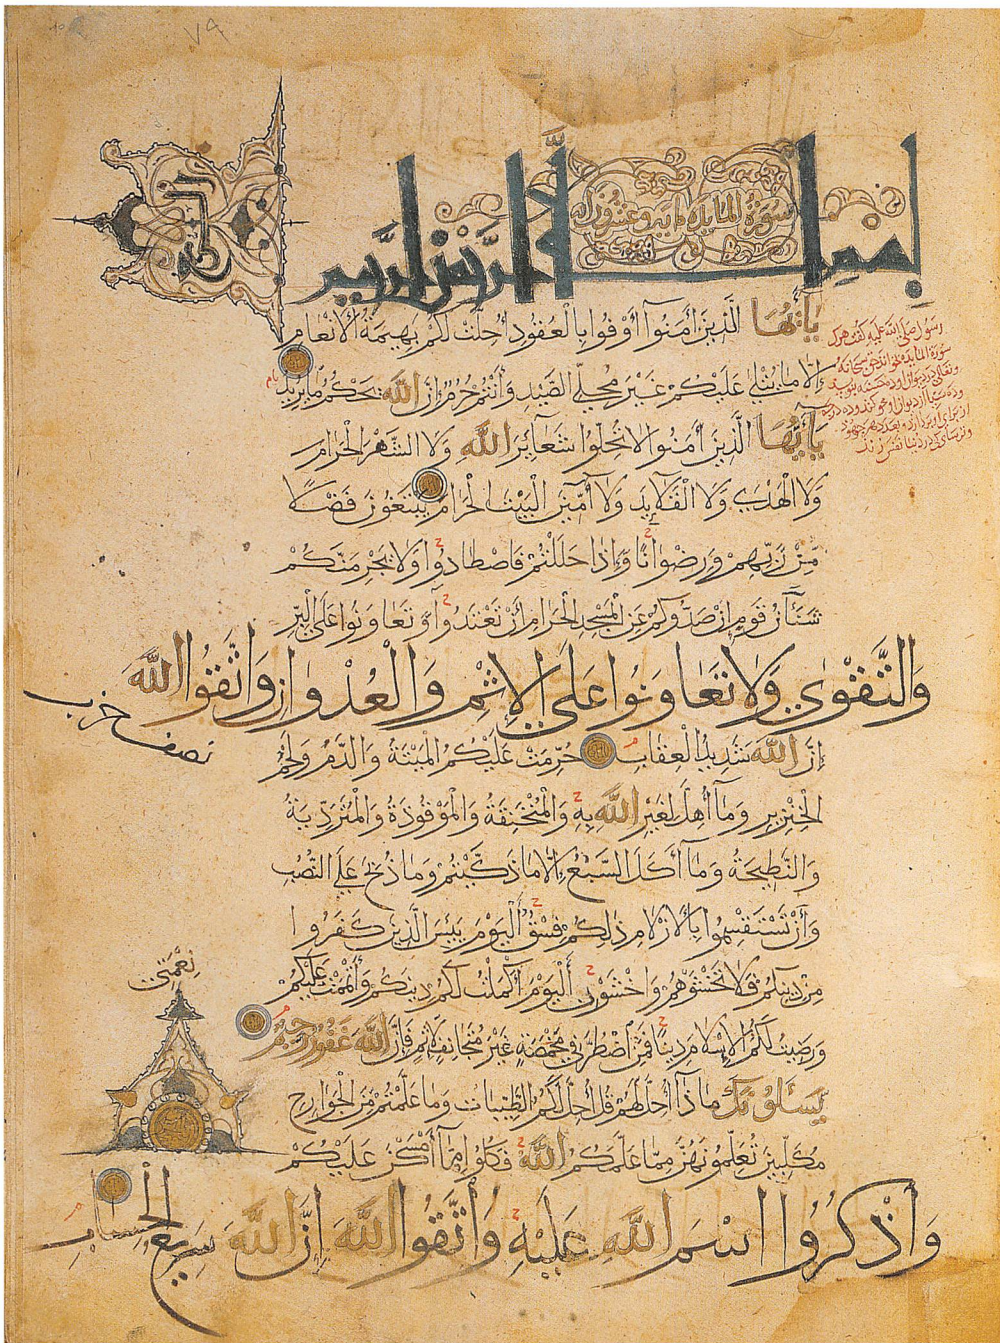 ٧٩
بسم الله الرحمن الرحيم
سورة المايدة مايه وعشرون
يَا أَيُّهَا الَّذِينَ آمَنُوا أَوْفُوا بِالْعُقُودِ أُحِلَّتْ لَكُمْ بَهِيمَةُ الْأَنْعَامِ
إِلَّا مَا يُتْلَى عَلَيْكُمْ غَيْرَ مُحِلِّي الصَّيْدِ وَأَنْتُمْ حُرُمٌ إِنَّ اللَّهَ يَحْكُمُ مَا يُرِيدُ
يَا أَيُّهَا الَّذِينَ آمَنُوا لَا تُحِلُّوا شَعَائِرَ اللَّهِ وَلَا الشَّهْرَ الْحَرَامَ
وَلَا الْهَدْيَ وَلَا الْقَلَائِدَ وَلَا آمِّينَ الْبَيْتَ الْحَرَامَ يَبْتَغُونَ فَضْلًا
مِّنْ رَّبِّهِمْ وَرِضْوَانًا وَإِذَا حَلَلْتُمْ فَاصْطَادُوا وَلَا يَجْرِمَنَّكُمْ
شَنَآنُ قَوْمٍ أَنْ صَدُّوكُمْ عَنِ الْمَسْجِدِ الْحَرَامِ أَنْ تَعْتَدُوا وَتَعَاوَنُوا عَلَى الْبِرِّ
وَالتَّقْوَى وَلَا تَعَاوَنُوا عَلَى الْإِثْمِ وَالْعُدْوَانِ وَاتَّقُوا اللَّهَ
نصف حزب
إِنَّ اللَّهَ شَدِيدُ الْعِقَابِ حُرِّمَتْ عَلَيْكُمُ الْمَيْتَةُ وَالدَّمُ وَلَحْمُ
الْخِنْزِيرِ وَمَا أُهِلَّ لِغَيْرِ اللَّهِ بِهِ وَالْمُنْخَنِقَةُ وَالْمَوْقُوذَةُ وَالْمُتَرَدِّيَةُ
وَالنَّطِيحَةُ وَمَا أَكَلَ السَّبُعُ إِلَّا مَا ذَكَّيْتُمْ وَمَا ذُبِحَ عَلَى النُّصُبِ
وَأَنْ تَسْتَقْسِمُوا بِالْأَزْلَامِ ذَلِكُمْ فِسْقٌ الْيَوْمَ يَئِسَ الَّذِينَ كَفَرُوا
مِنْ دِينِكُمْ فَلَا تَخْشَوْهُمْ وَاخْشَوْنِ الْيَوْمَ أَكْمَلْتُ لَكُمْ دِينَكُمْ وَأَتْمَمْتُ عَلَيْكُمْ
نِعْمَتِي
وَرَضِيتُ لَكُمُ الْإِسْلَامَ دِينًا فَمَنِ اضْطُرَّ فِي مَخْمَصَةٍ غَيْرَ مُتَجَانِفٍ لِإِثْمٍ فَإِنَّ اللَّهَ غَفُورٌ رَحِيمٌ
يَسْأَلُونَكَ مَاذَا أُحِلَّ لَهُمْ قُلْ أُحِلَّ لَكُمُ الطَّيِّبَاتُ وَمَا عَلَّمْتُمْ مِنَ الْجَوَارِحِ
مُكَلِّبِينَ تُعَلِّمُونَهُنَّ مِمَّا عَلَّمَكُمُ اللَّهُ فَكُلُوا مِمَّا أَمْسَكْنَ عَلَيْكُمْ
وَاذْكُرُوا اسْمَ اللَّهِ عَلَيْهِ وَاتَّقُوا اللَّهَ إِنَّ اللَّهَ سَرِيعُ الْحِسَابِ
رسول صلى الله عليه كفت هرك
سورة المايدة بخواند حق سبحانه
وتعالى در ديوان او ده حسنه بنويسد
وده سيئة از ديوان او محو كند وده درجه
از براى او بردارد بعدد هر جهود
وترسائى كه در دنيا نفس زند